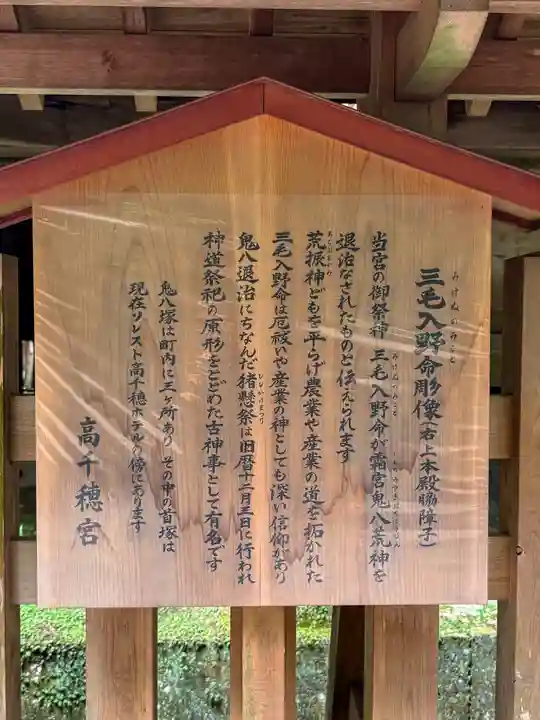 三毛入野命彫像(右上本殿脇障子)
当宮の御祭神 三毛入野命が霜宮鬼八荒神を
退治なされたものと伝えられます
荒振神どもを平らげ農業や産業の道を拓かれた
三毛入野命は厄祓いや産業の神としても深い信仰があり
鬼八退治にちなんだ猪懸祭は旧暦十二月三日に行われ
神道祭祀の原形をとどめた古神事として有名です
鬼八塚は町内に三ヶ所あり その中の首塚は
現在ソレスト高千穂ホテルの傍にあります
高千穂宮